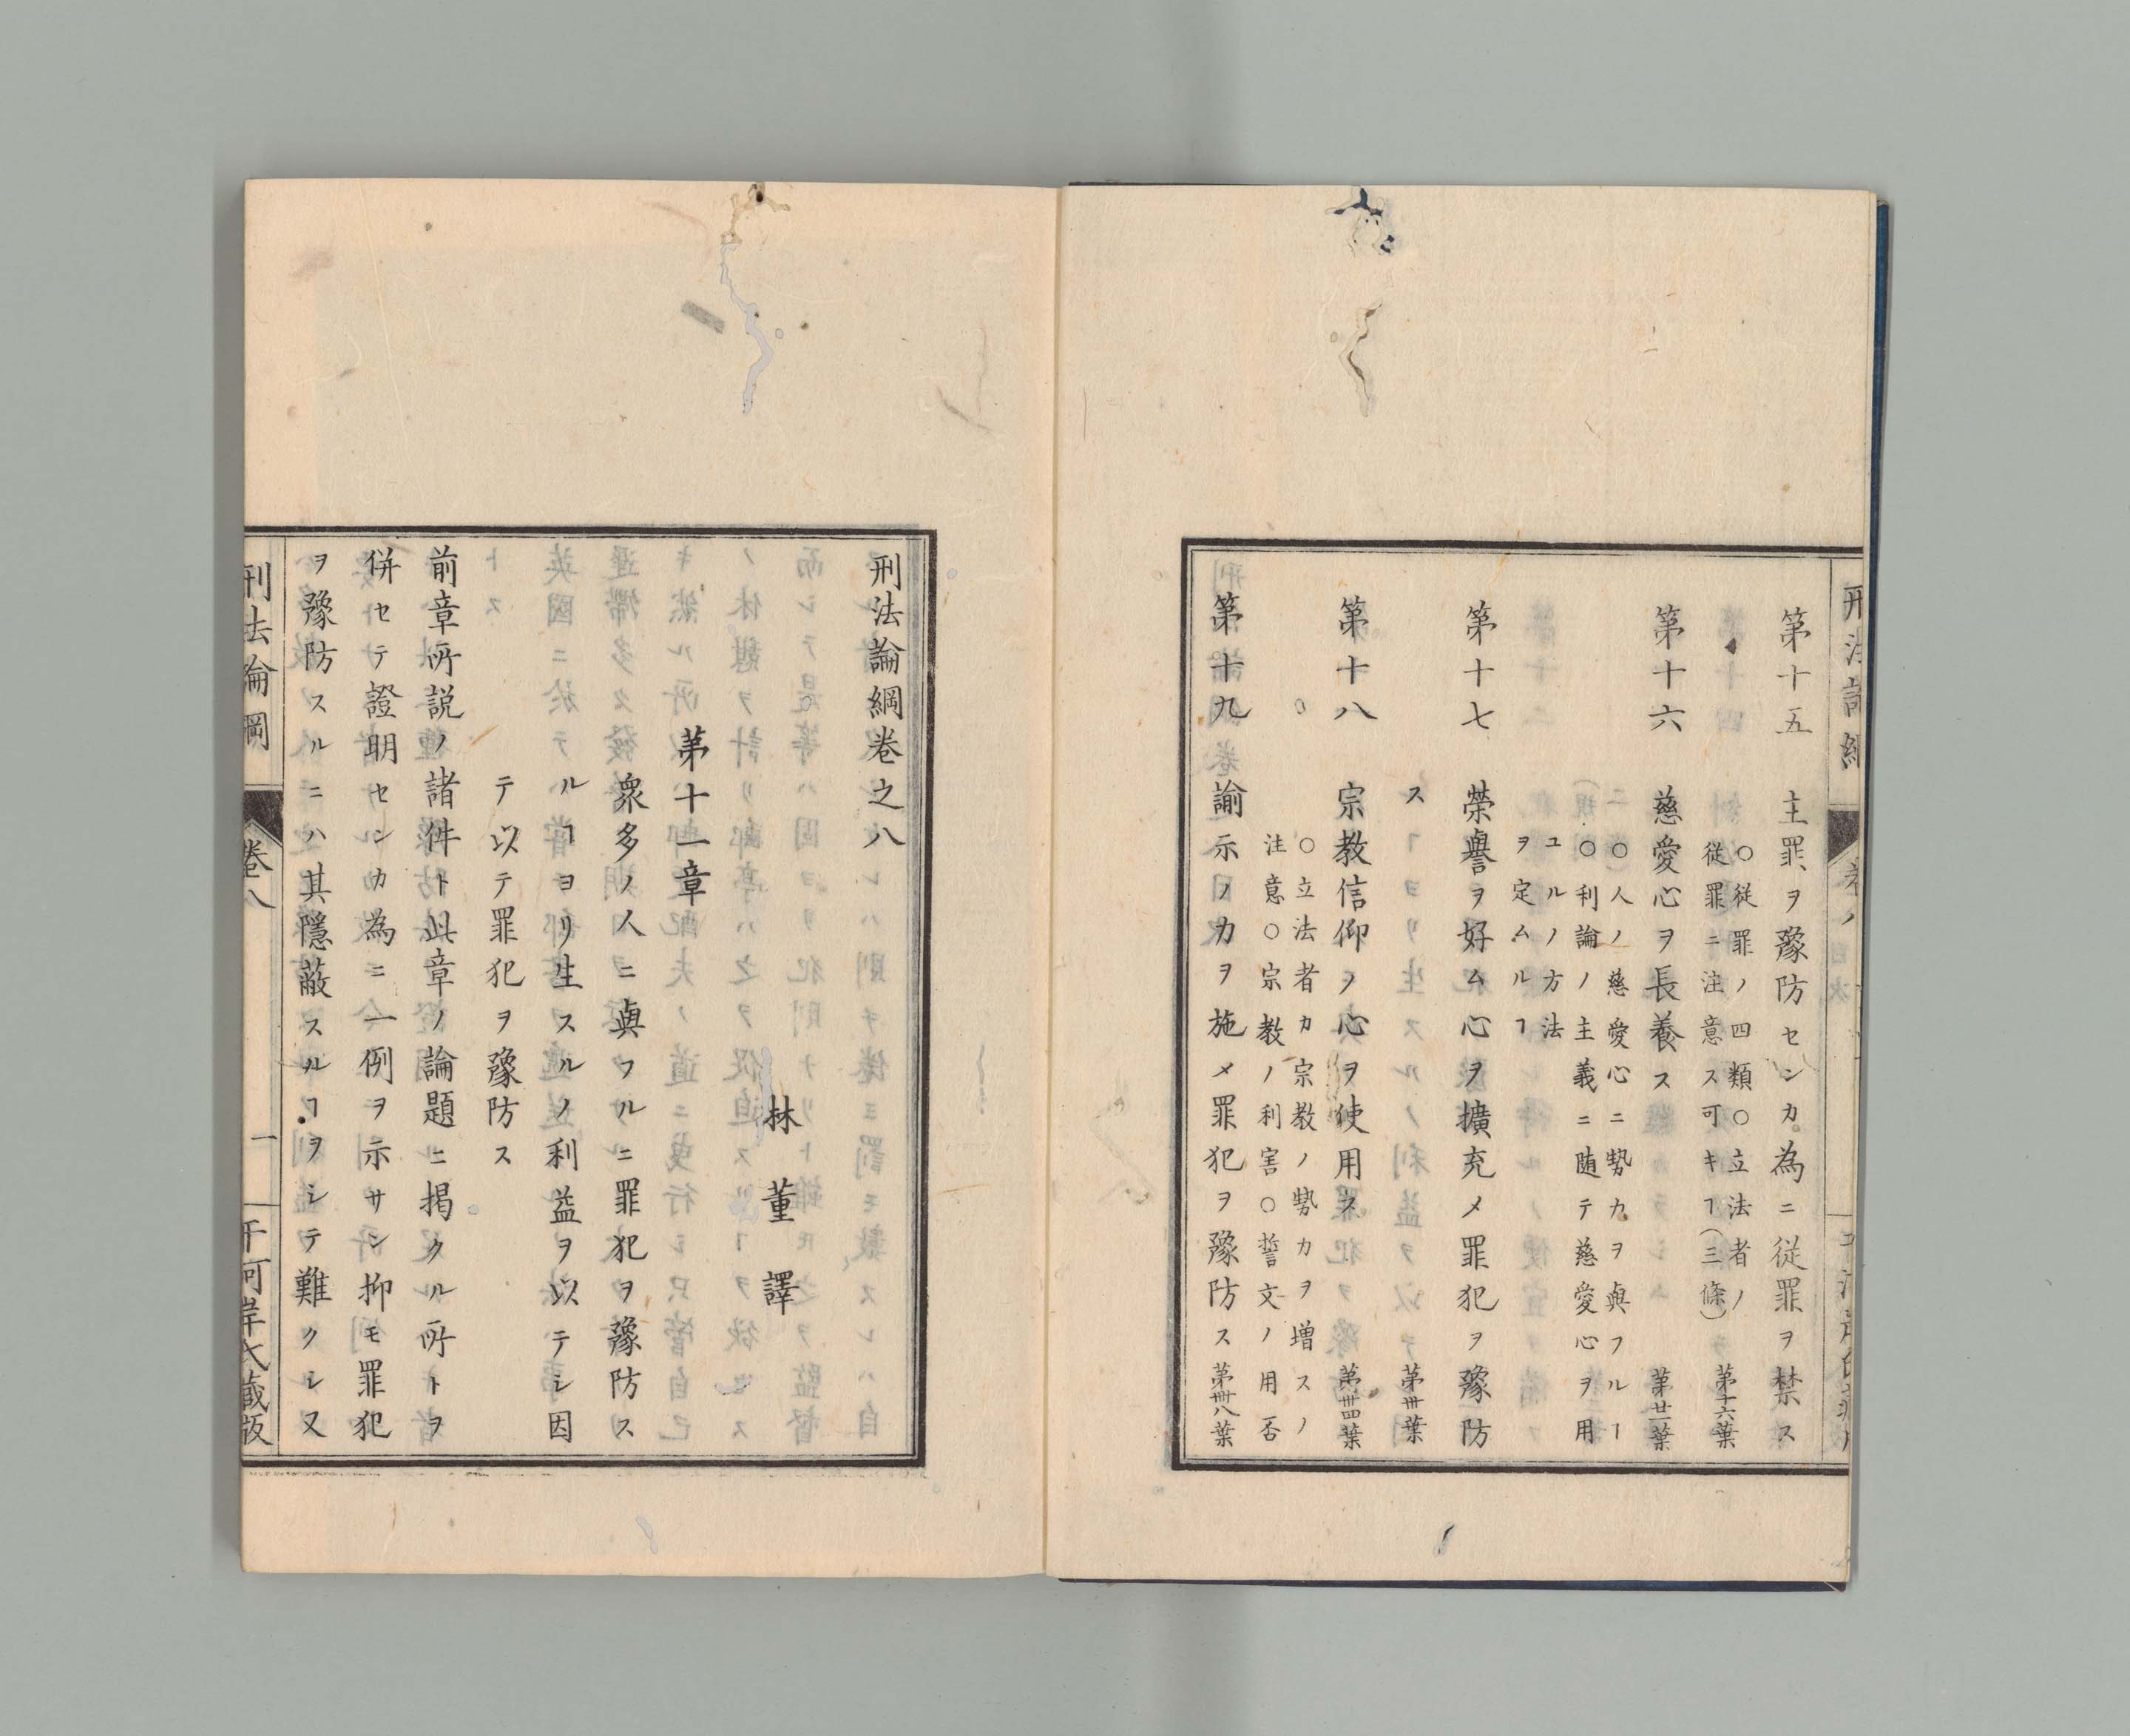 第十五　主罪ヲ豫防センカ為ニ従罪ヲ禁ス
○従罪ノ四類○立法者ノ
従罪ニ注意ス可キヿ(三條)
第十六葉
第十六　慈愛心ヲ長養ス
第廿一葉
○人ノ慈愛心ニ勢力ヲ與フルヿ
○利論ノ主義ニ随テ慈愛心ヲ用
ユルノ方法
ヲ定ムルヿ
第十七　榮譽ヲ好ム心ヲ擴充メ罪犯ヲ豫防
ス
第卅葉
第十八　宗教信仰ノ心ヲ使用ス
第卅四葉
○立法者カ宗教ノ勢力ヲ増スノ
注意○宗教ノ利害○誓文ノ用否
第十九　諭示ノ力ヲ施メ罪犯ヲ豫防ス
第卅八葉
刑法論綱卷之八
林董譯
第十一章
衆多ノ人ニ與フルニ罪犯ヲ豫防ス
ルヿヨリ生スルノ利益ヲ以テシ因
テ以テ罪犯ヲ豫防ス
前章所説ノ諸件ト此章ノ論題ニ掲クル所トヲ
併セテ證明センカ為ニ一例ヲ示サン抑モ罪犯
ヲ豫防スルニハ其隱蔽スルヿヲシテ難クシ又
刑法論綱
卷八
一